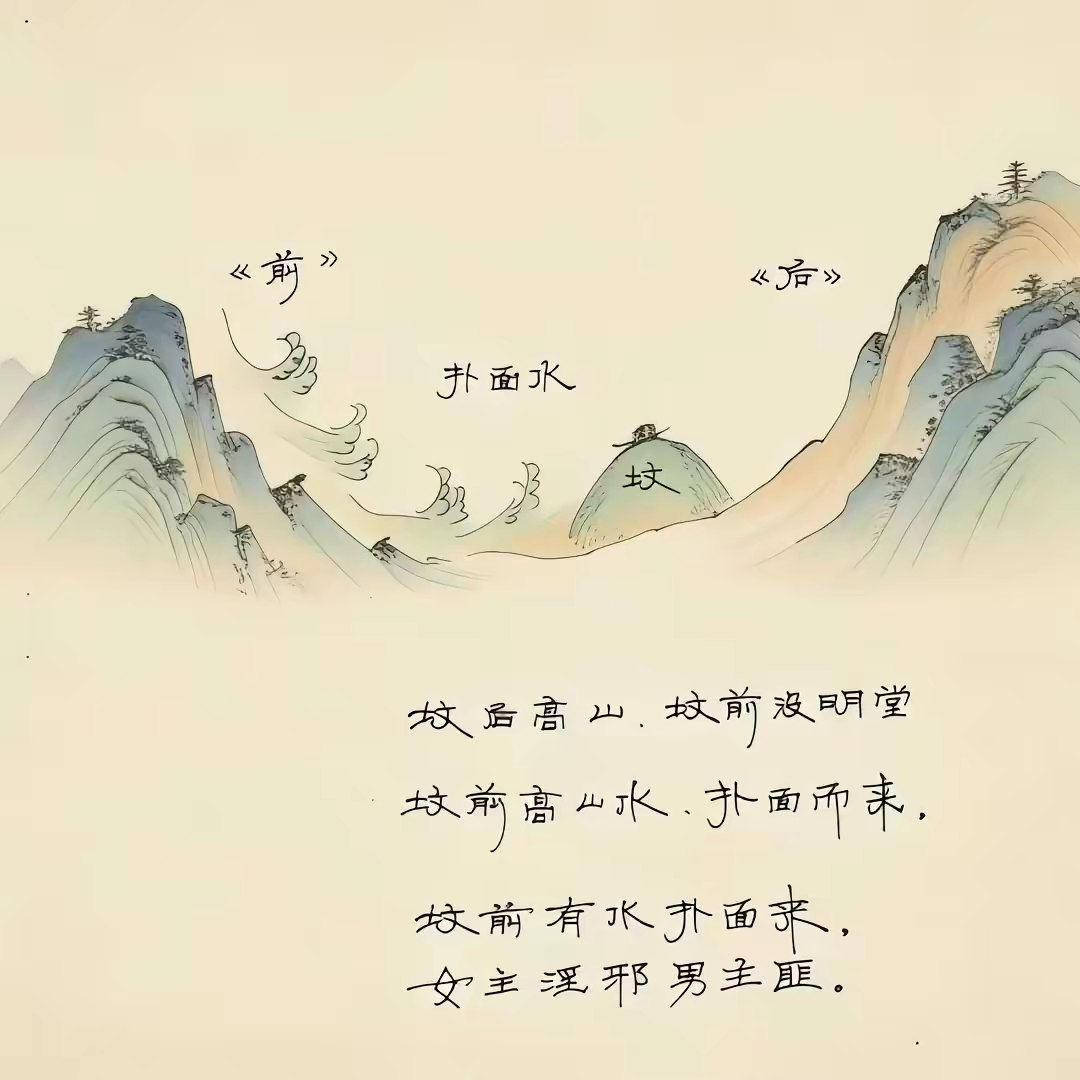 《前》
《后》
扑面水
坟
坟后高山、坟前没明堂
坟前高山水、扑面而来，
坟前有水扑面来，
女主淫邪男主匪。